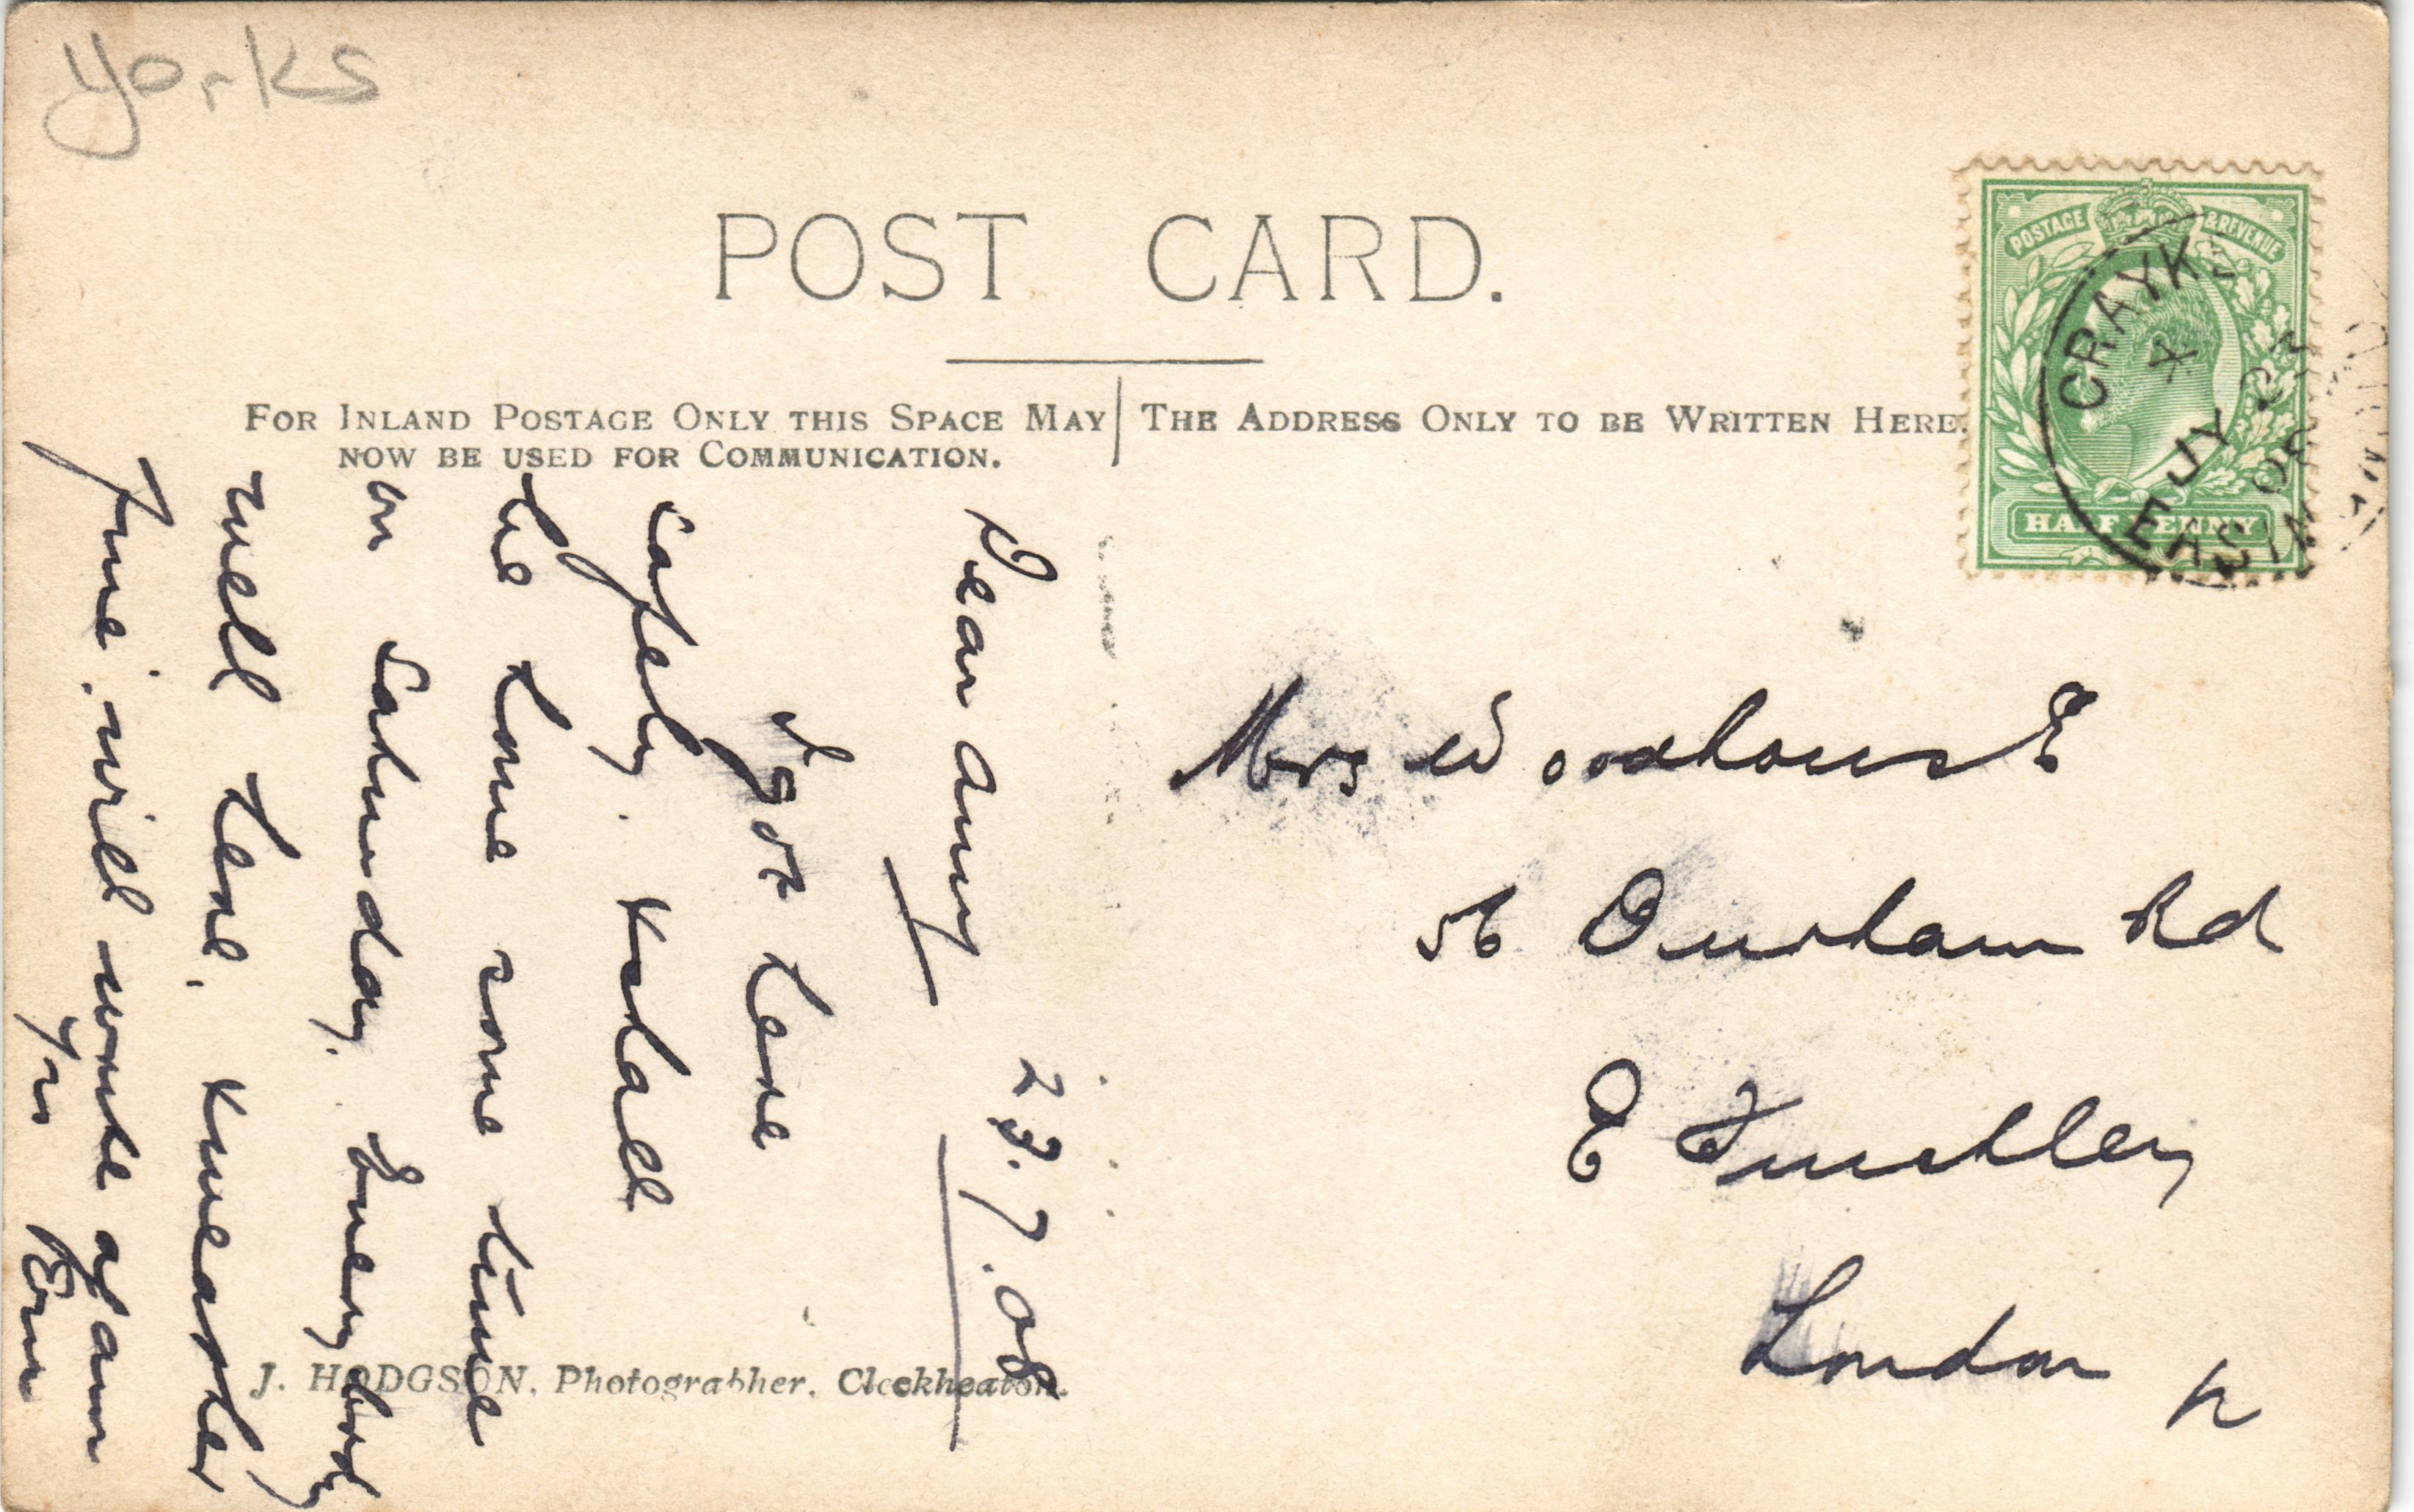 Yorks
POST CARD.
FOR INLAND POSTAGE ONLY THIS SPACE MAY
NOW BE USED FOR COMMUNICATION.
THE ADDRESS ONLY TO BE WRITTEN HERE.
POSTAGE & REVENUE
HALF PENNY
CRAYK
JY
08
EASIN
Mrs Woodhouse
56 Durham Rd
E Finchley
London N
23.7.08
Dear Amy
I got here
safely. & shall
be home some time
on Saturday. Everybody
well here. & weather
fine. will write again
Yrs
J. HODGSON, Photographer, Cleckheaton.